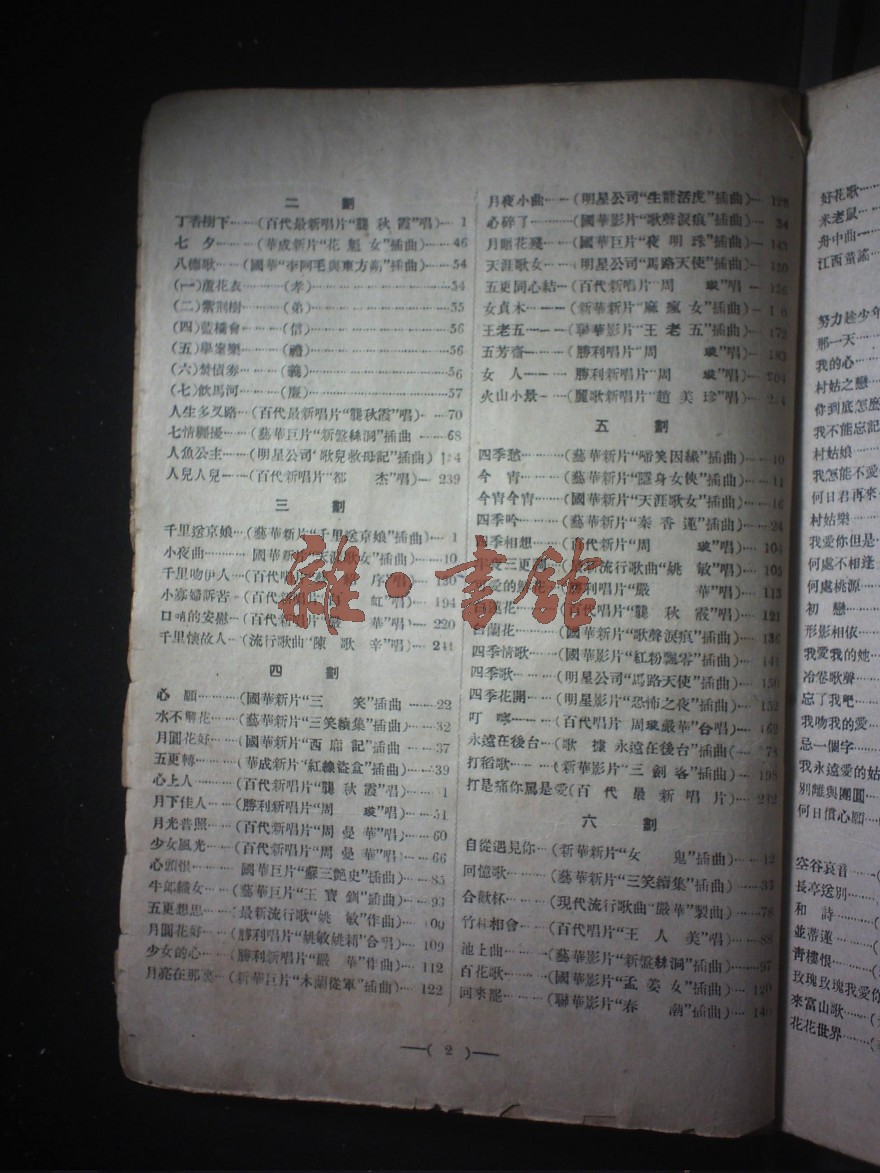 二 劃
丁香樹下……(百代最新唱片“龔秋霞”唱)… 1
七 夕……(華成新片“花魁女”插曲)… 46
八德歌……(國華“李阿毛與東方朔”插曲)… 54
(一)蘆花衣………(孝)……………… 54
(二)紫荆樹………(弟)……………… 55
(四)藍橋會………(信)……………… 56
(五)舉案樂………(禮)……………… 56
(六)焚債劵………(義)……………… 56
(七)飲馬河………(廉)……………… 57
人生多叉路…(百代最新唱片“龔秋霞”唱)… 70
七情騷擾……(藝華巨片“新盤絲洞”插曲 …… 68
人魚公主……(明星公司“歌兒救母記”插曲)
人兒人兒……(百代新唱片“都 杰”唱)… 239
三 劃
千里送京娘…(藝華新片“千里送京娘”插曲)… 1
小夜曲…… 國華新片“天涯歌女”插曲)… 10
千里吻伊人…(百代唱片 序)
小寡婦訴苦…(百代 虹)… 194
口哨的安慰…(百代新唱片“嚴 華”唱)… 220
千里懷故人…(流行歌曲“陳歌辛”唱)… 241
四 劃
心 願……(國華新片“三 笑”插曲 …… 22
水不解花……(藝華新片“三笑續集”插曲)… 32
月圓花好……(國華新片“西廂記”插曲 …… 37
五更轉………(華成新片“紅線盜盒”插曲)… 39
心上人………(百代新唱片“龔秋霞”唱)…
月下佳人……(勝利新唱片“周 璇”唱)… 51
月光普照……(百代新唱片“周曼華”唱)… 60
少女風光……(百代新唱片“周曼華”唱)… 66
心頭恨…… 國華巨片“蘇三艷史”插曲)… 85
牛郎織女……(藝華巨片“王寶釧”插曲)… 93
五更想思…… 最新流行歌“姚 敏”作曲)…
月圓花好……(勝利唱片“姚敏姚莉”合唱)… 109
少女的心……(勝利新唱片“嚴 華”作曲)… 112
月亮在那裏…(新華巨片“木蘭從軍”插曲)… 122
月夜小曲……(明星公司“生龍活虎”插曲)… 128
心碎了………(國華影片“歌聲淚痕”插曲)… 34
月明花殘……(國華巨片“夜明珠”插曲)… 143
天涯歌女… 明星公司“馬路天使”插曲)…
五更同心結…(百代新唱片“周 璇”唱)…
女貞木………(新華新片“麻瘋女”插曲)…
王老五………(聯華影片“王老五”插曲)… 172
五芳齋………(勝利唱片“周 璇”唱)… 183
女 人…… 勝利新唱片“周 璇”唱)… 204
火山小景……(麗歌新唱片“趙美珍”唱)…
五 劃
四季愁………(藝華新片“啼笑因緣”插曲)… 10
今 宵………(藝華新片“隱身女俠”插曲)… 11
今宵今宵……(國華新片“天涯歌女”插曲)… 16
四季吟………(藝華新片“秦香蓮”插曲)… 24
四季相想……(百代新片“周 璇”唱)… 104
半夜三更 流行歌曲“姚 敏”唱)… 105
愛的鮮花 勝利唱片“嚴 華”唱)… 113
百代唱片“龔秋霞”唱)… 121
白蘭花………(國華新片“歌聲淚痕”插曲)… 136
四季情歌……(國華影片“紅粉飄零”插曲)… 141
四季歌………(明星公司“馬路天使”插曲)… 150
四季花開……(明星影片“恐怖之夜”插曲)… 152
叮 嚀………(百代唱片 周璇嚴華”合唱)… 162
永遠在後台…(歌 據 永遠在後台”插曲(… 78
打稻歌………(新華影片“三劍客”插曲)… 198
打是痛你罵是愛(百 代 最 新 唱 片)… 232
六 劃
自從遇見你…(新華新片“女 鬼”插曲)… 12
回憶歌………(藝華新片“三笑續集”插曲)… 33
合歡杯………(現代流行歌曲“嚴華”製曲)… 78
竹林相會……(百代唱片“王人美”唱)… 88
池上曲………(藝華影片“新盤絲洞”插曲)… 97
百花歌………(國華影片“孟姜女”插曲)… 120
回來罷………(聯華影片“春 潮”插曲)…
—( 2 )—
好花歌……
米老鼠……
舟中曲……
江西童謠…
努力趁少年
那一天……
我的心……
村姑之戀…
你到底怎麼
我不能忘記
村姑娘……
我怎能不愛
何日君再來
村姑樂……
我愛你但是
何處不相逢
何處桃源…
初 戀……
形影相依…
我愛我的她
冷卷歌聲…
忘了我吧…
我吻我的愛
忌一個字…
我永遠愛的姑
別離與團圓…
何日償心願…
空谷哀音…
長亭送別…
和 詩……
並蒂蓮……
青樓恨……
玫瑰玫瑰我愛你
來富山歌…
花花世界…
雜·書館